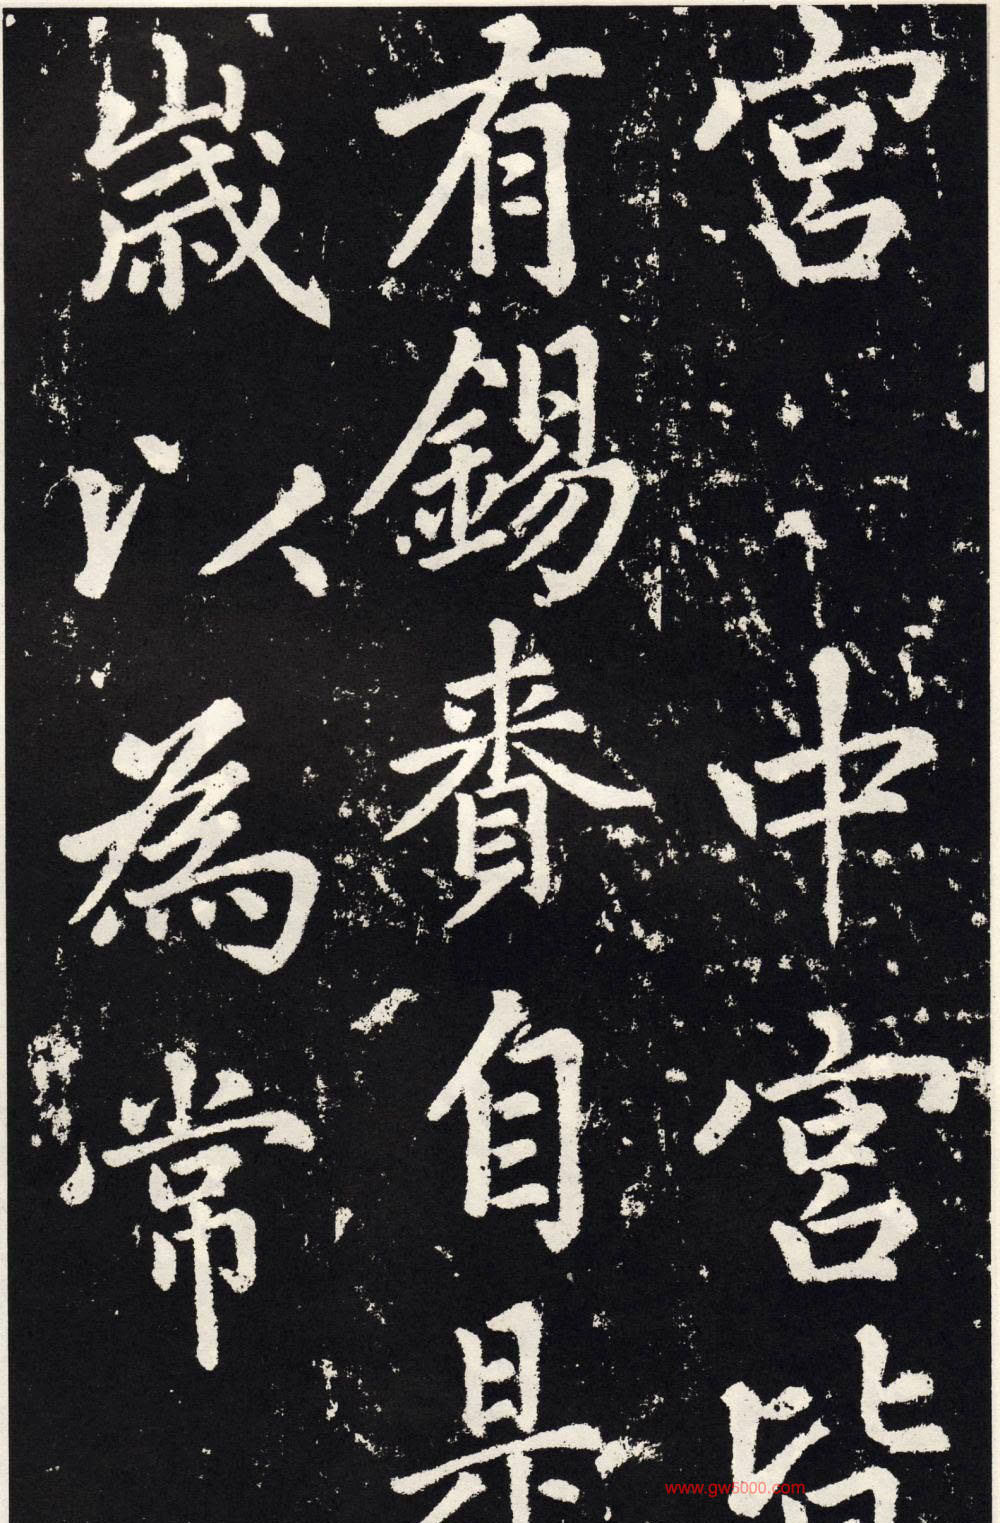 宮中宮皆
有錫賚自是
歲以為常
www.gw5000.com